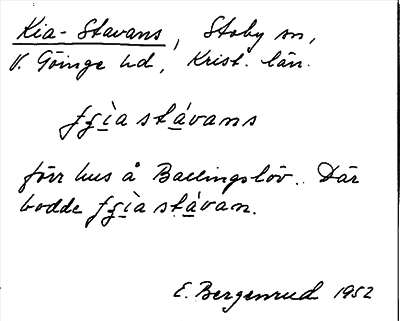 Kia-Stavans, Stoby sn,
V. Göinge hd, Krist. län.
fʒìa stávans
förr hus å Ballingslöv. Där
bodde fʒìa stávan.
E. Bergenrud 1952